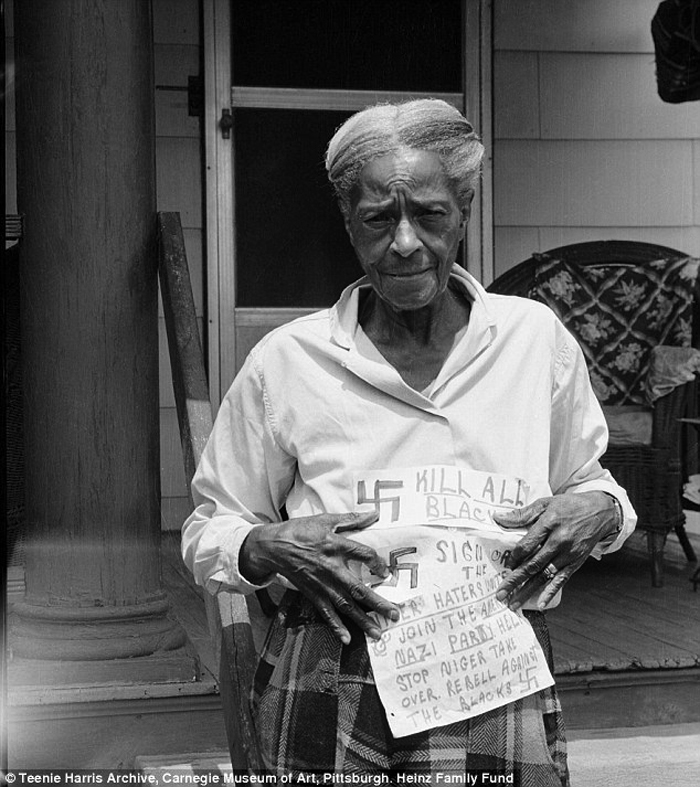 KILL ALL
BLACKS
SIGN OF
THE
HATERS
JOIN THE
NAZI PARTY HELP
STOP NIGER TAKE
OVER. REBELL AGAINST
THE BLACKS
© Teenie Harris Archive, Carnegie Museum of Art, Pittsburgh. Heinz Family Fund